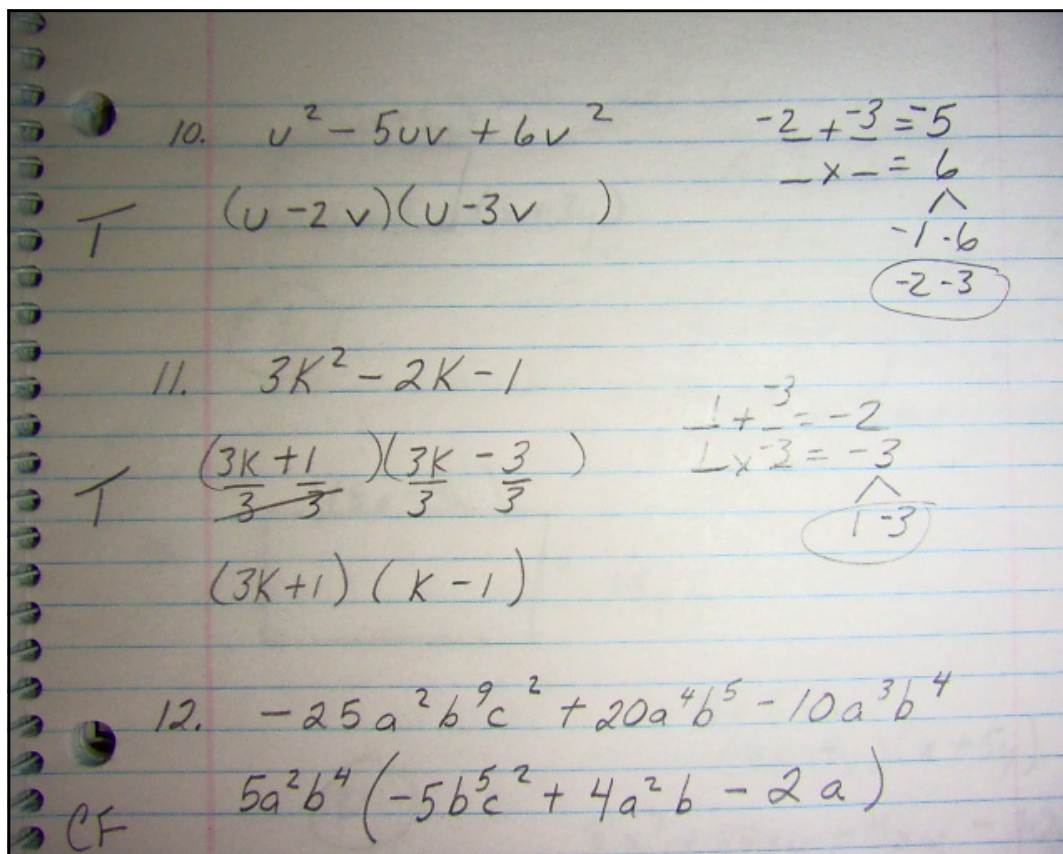 10. u² - 5uv + 6v²
-2 + -3 = -5
_ x _ = 6
T (u - 2v)(u - 3v )
-1 -6
-2 -3
11. 3K² - 2K - 1
1 + -3 = -2
1 x -3 = -3
T (3K/3 + 1/3 )(3K/3 - 3/3 )
1 -3
(3K+1) (K - 1)
12. -25a²b⁹c² + 20a⁴b⁵ - 10a³b⁴
CF 5a²b⁴(-5b⁵c² + 4a²b - 2a)